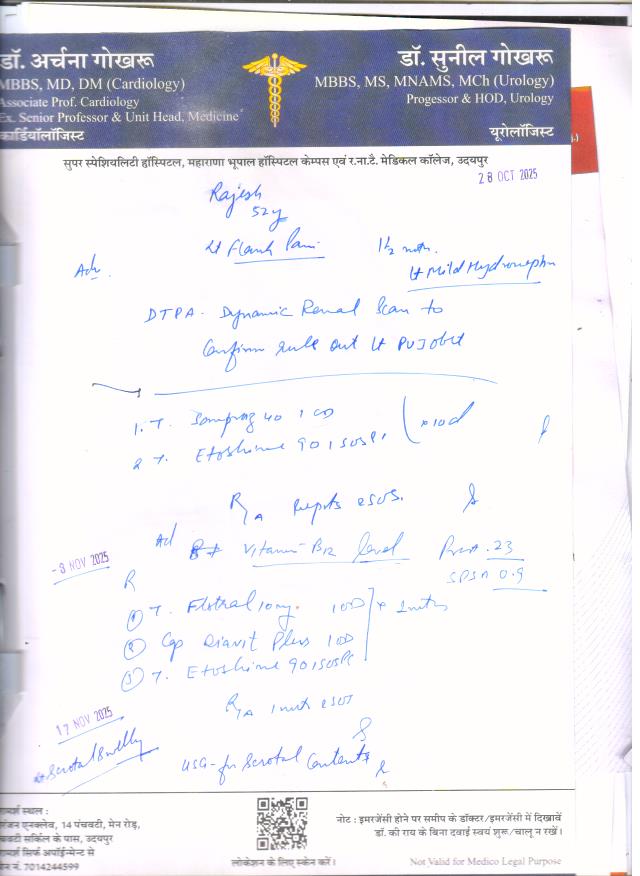 डॉ. अर्चना गोखरू
MBBS, MD, DM (Cardiology)
Associate Prof. Cardiology
Ex. Senior Professor & Unit Head, Medicine
कार्डियॉलॉजिस्ट
डॉ. सुनील गोखरू
MBBS, MS, MNAMS, MCh (Urology)
Progessor & HOD, Urology
यूरोलॉजिस्ट
सुपर स्पेशियलिटी हॉस्पिटल, महाराणा भूपाल हॉस्पिटल केम्पस एवं र.ना.टै. मेडिकल कॉलेज, उदयपुर
28 OCT 2025
Rajesh
52y
Lt Flank Pain 1½
Adv. Lt Mild Hydroneph
DTPA - Dynamic Renal Scan to
Confirm rule out Lt PUJ
1. T. 40 1 OD
2 T. Etoshine 90 1 SOS x 10d
R/A Reports
Ad Vitamin-B12 level 23
- 3 NOV 2025
0.9
R
① T. 10mg. 1OD
② Cap Plus 1OD
③ T. Etoshine 90 1 SOS
R/A
17 NOV 2025
Scrotal Swelly
USG - for Scrotal Contents
रामर्श स्थल :
रंजन एनक्लेव, 14 पंचवटी, मेन रोड़,
चवटी सर्किल के पास, उदयपुर
रामर्श सिर्फ अपॉईन्मेन्ट से
न नं. 7014244599
लोकेशन के लिए स्केन करें।
नोट : इमरजेंसी होने पर समीप के डॉक्टर/इमरजेंसी में दिखावें
डॉ. की राय के बिना दवाई स्वयं शुरू/चालू न रखें।
Not Valid for Medico Legal Purpose